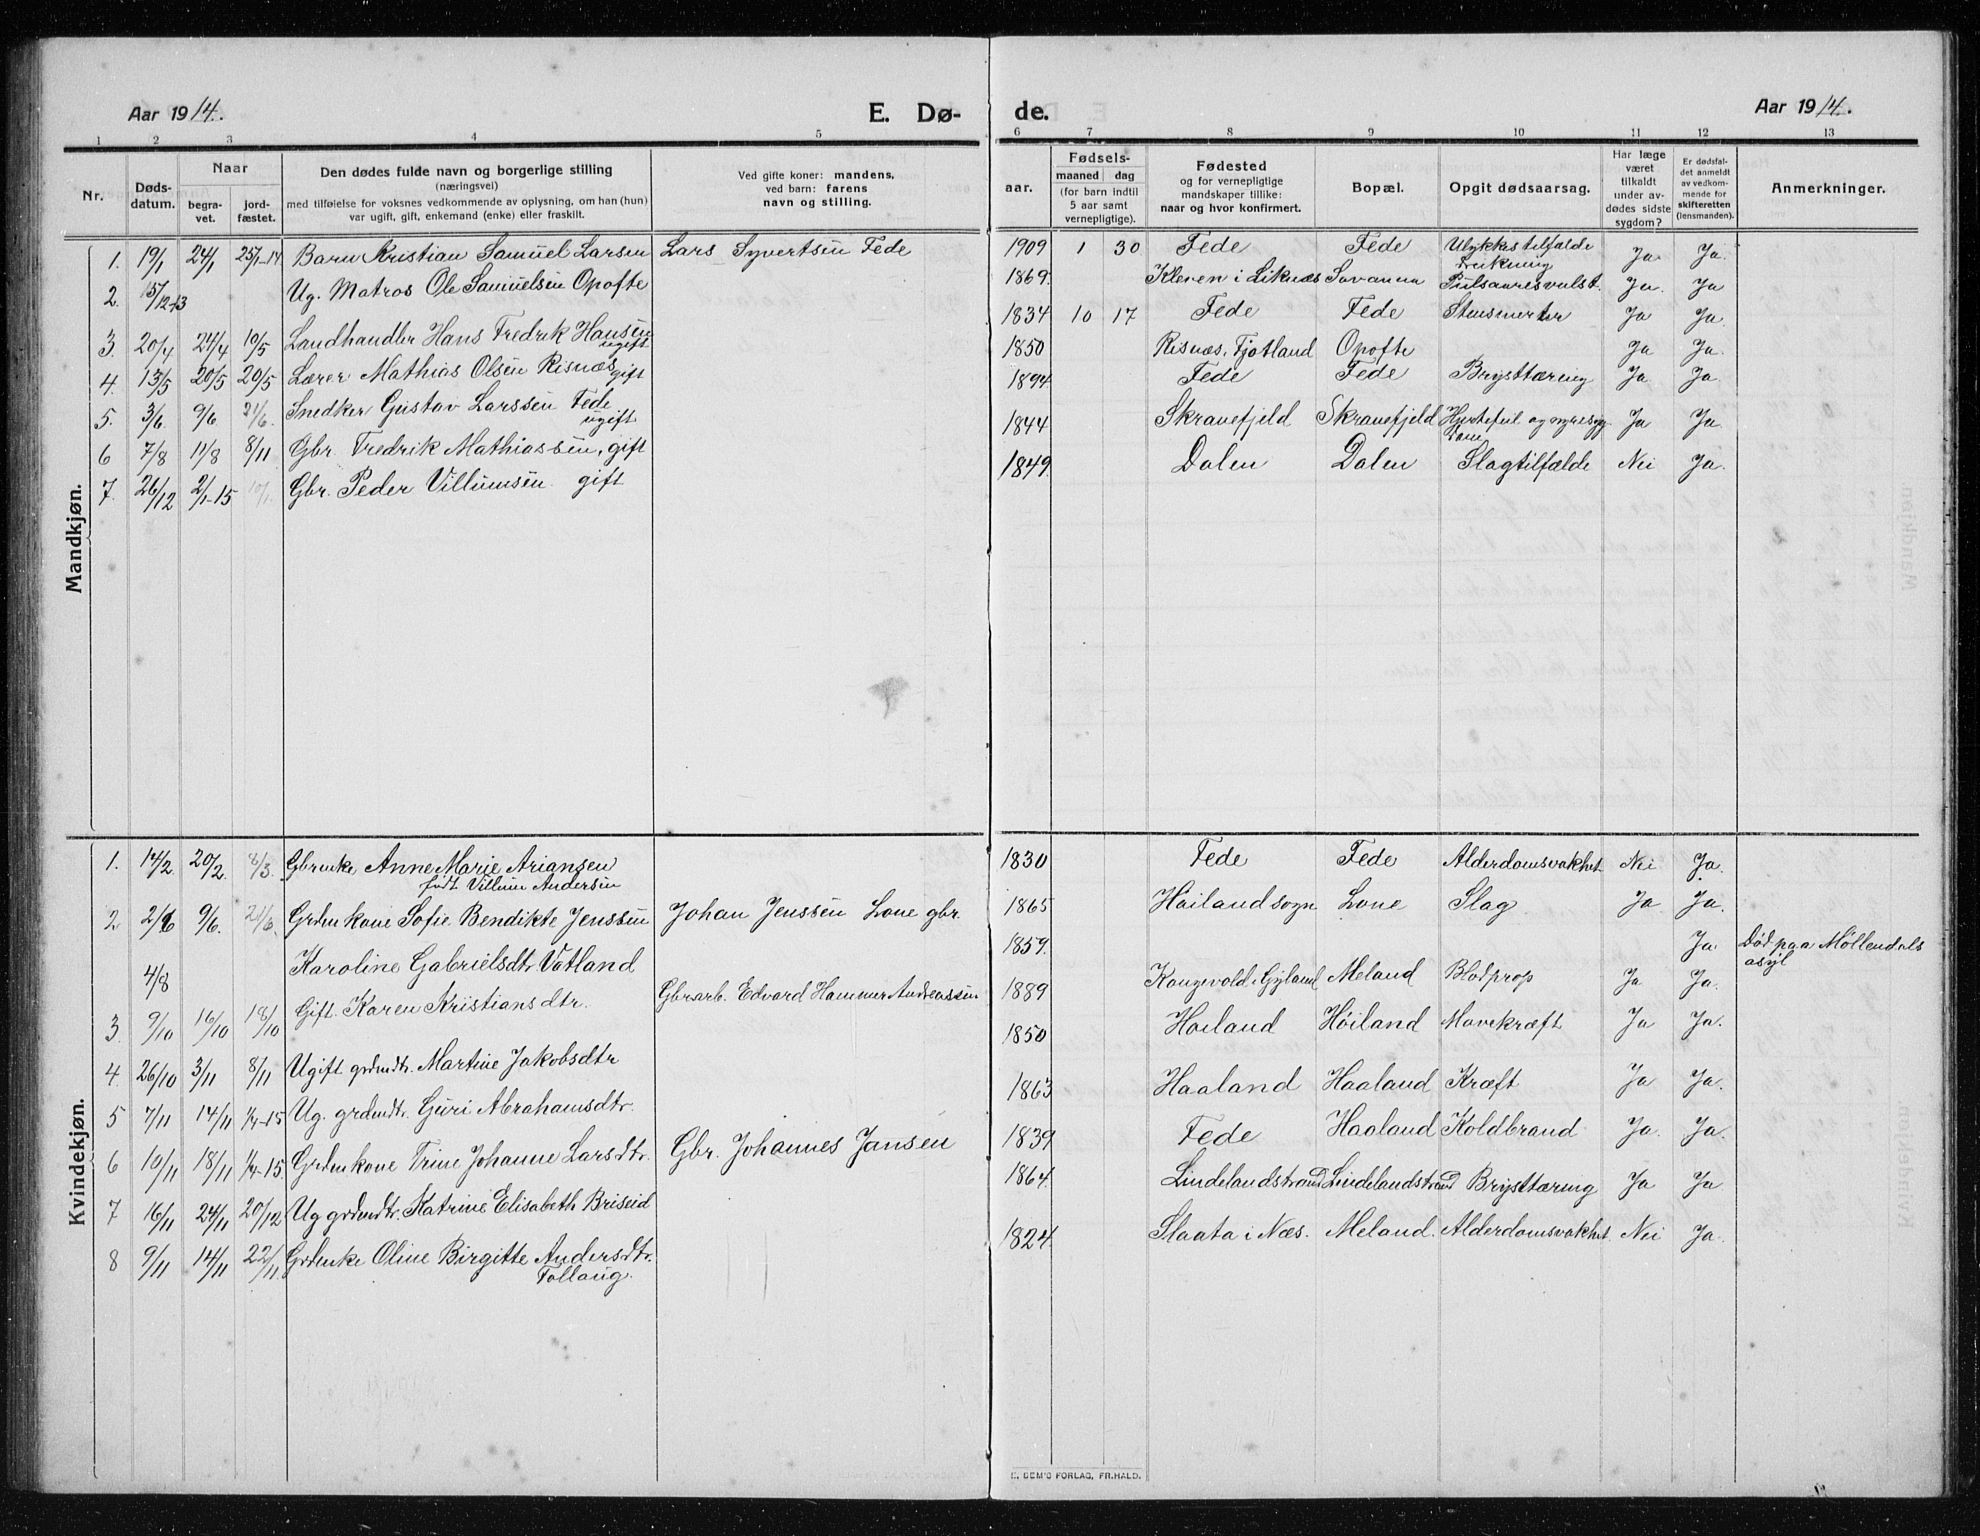 Aar 1914.
E. Dø-
de.
Aar 1914.
1 2 3 4 5 6 7 8 9 10 11 12 13
Nr.
Døds-
datum.
Naar
begra-
vet.
jord-
fæstet.
Den dødes fulde navn og borgerlige stilling
(næringsvei)
med tilføielse for voksnes vedkommende av oplysning, om han (hun)
var ugift, gift, enkemand (enke) eller fraskilt.
Ved gifte koner: mandens,
ved barn: farens
navn og stilling.
aar.
Fødsels-
maaned dag
(for barn indtil
5 aar samt
vernepligtige).
Fødested
og for vernepligtige
mandskaper tillike:
naar og hvor konfirmert.
Bopæl.
Opgit dødsaarsag.
Har læge
været
tilkaldt
under av-
dødes sidste
sygdom?
Er dødsfal-
det anmeldt
av vedkom-
mende for
skifteretten
(lensmanden).
Anmerkninger.
Mandkjøn.
1. 19/1 24/1 25/1-14 Barn Kristian Samuel Larsen Lars Syvertsen Fede 1909 1 30 Fede Fede Ulykkestilfælde Ja Ja.
2. 15/12-13 Ug. Matros Ole Samuelsen Opofte 1869. Kleven i Liknæs Savanna Pulsaaresvulst. Ja. Ja
3. 20/4 24/4 10/5 Landhandler Hans Fredrik Hansen 1834 10 17 Fede Fede Ja Ja.
ugift
4. 13/5 20/5 20/5 Lærer Mathias Olsen Risnæs gift 1850 Risnæs, Fjotland Opofte Ja Ja.
5. 3/6 9/6 21/6. Snedker Gustav Larssen Fede 1894 Fede Fede Brysttæring Ja Ja
ugift
6 7/8 11/8 8/11 Gbr. Fredrik Mathiassen, gift 1844 Skravefjeld Skravefjeld Hjertefeil og nyresyg- Ja Ja.
dom
7. 26/12 2/1-15 10/1 Gbr. Peder Villumsen gift 1849 Dalen Dalen Slagtilfælde Nei Ja.
Kvindekjøn.
1. 14/2 20/2. 8/3. Gbrenke Anne Marie Ariansen 1830 Fede Fede Alderdomsvakhet Nei Ja.
født Villum Andersen
2 2/6 9/6. 21/6. Grdm kone Sofie Bendikte Jenssen Johan Jenssen Lone gbr. 1865 Høiland sogn Lone Slag Ja Ja.
4/8 Karoline Gabrielsdtr Vatland 1859. Ja Død paa Møllendals
asyl
3 9/10 16/10 18/10 Gift Karen Kristiansdtr. Gbrarb. Edvard Hammer Andreassen 1889 Kongevold i Gyland Meland Blodprop Ja Ja.
4. 26/10 3/11 8/11 Ugift grdmdtr. Martine Jakobsdtr 1850 Høiland Høiland Mavekræft Ja Ja.
5 7/11 14/11 1/4-15 Ug. grdmdtr. Guri Abrahamsdtr. 1863 Haaland Haaland Kræft Ja Ja.
6 10/11 18/11 1/4-15. Grdm kone Trine Johanne Larsdtr. Gbr. Johannes Jansen 1839 Fede Haaland Koldbrand Ja. Ja.
7 16/11 24/11 20/12 Ug grdmdtr. Katrine Elisabeth Briseid 1864 Lindelandstrand Lindelandstrand Brysttæring Ja Ja
8 9/11 14/11 22/11 Grdenke Oline Birgitte Andersdtr. 1824 Slaata i Næs. Meland. Alderdomsvakhet Nei Ja.
Tollaug.
E. SEM'S FORLAG, FR.HALD.